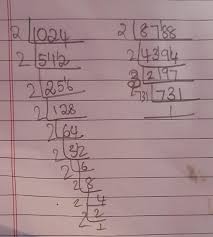 2|1024
2|512
2|256
2|128
2|64
2|32
2|16
2|8
2|4
2|2
1
2|8788
2|4394
3|2197
731|731
1